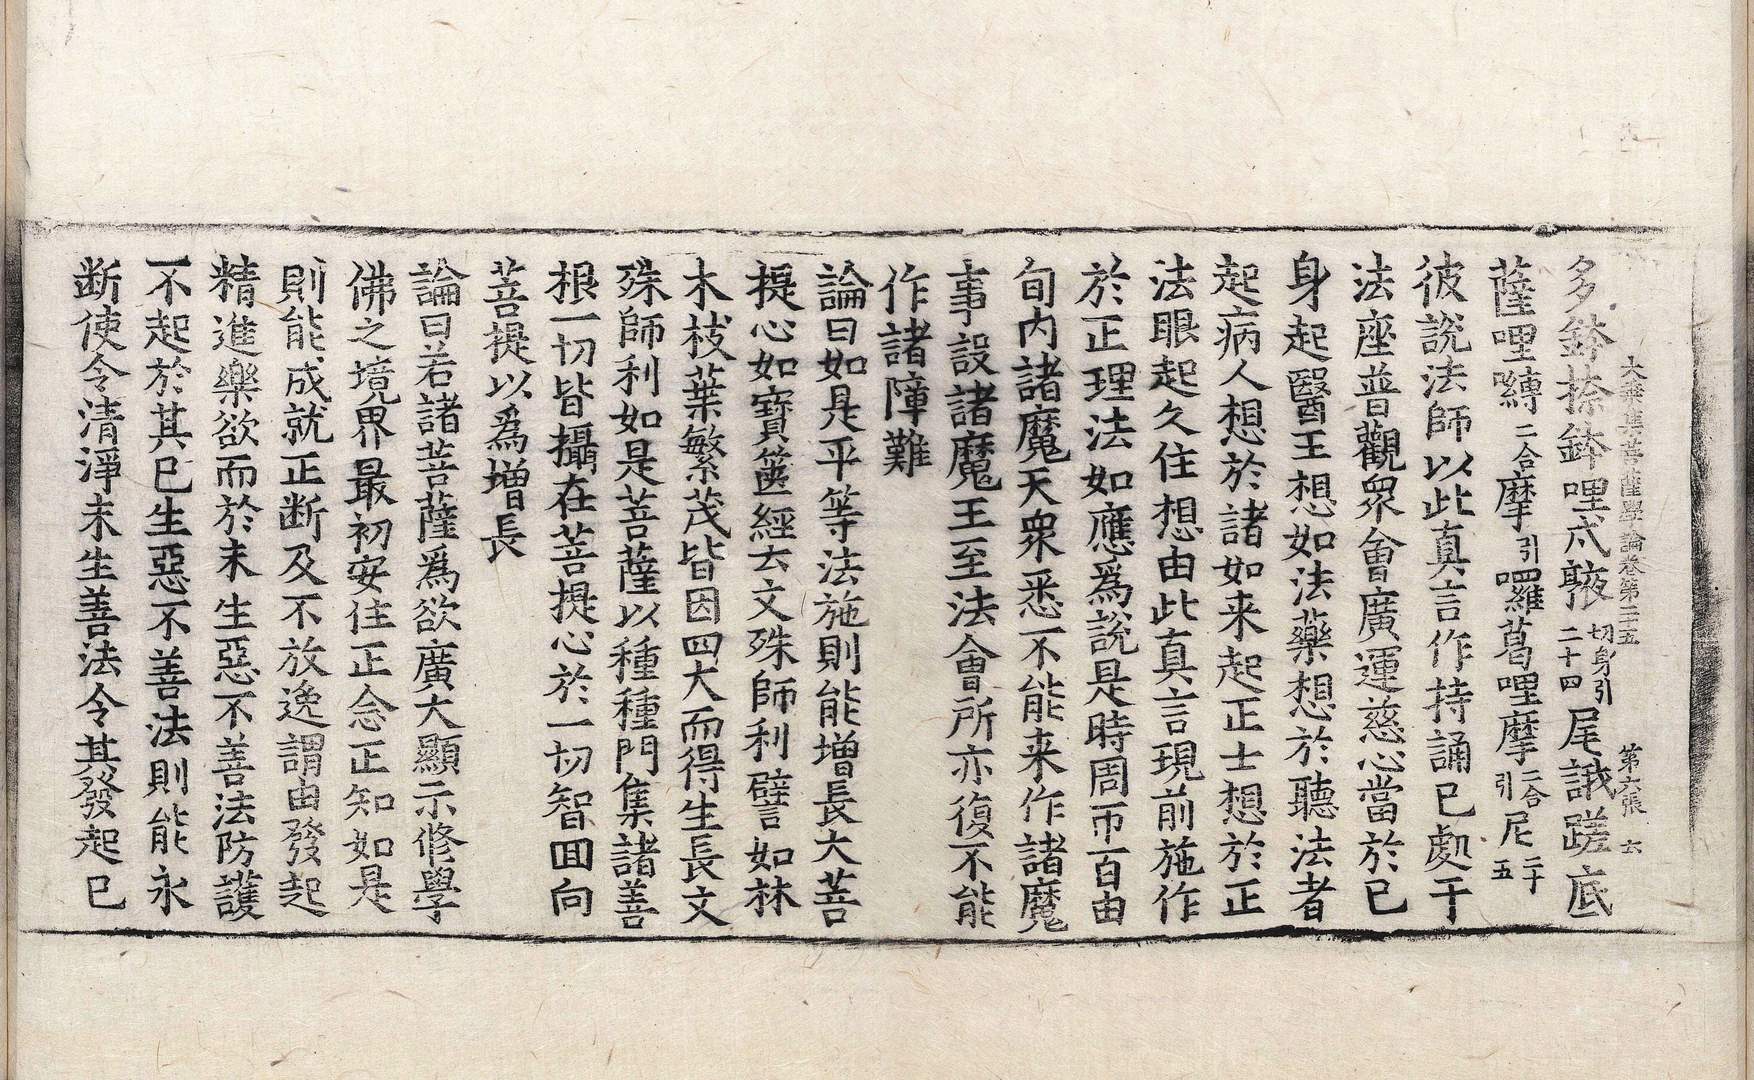 大乘集菩薩學論卷第二十五 第六張 六
多鉢捺鉢哩尺腋切身引二十四尾誐蹉底
薩哩嚩二合摩引囉葛哩摩二合引尼二十五
彼說法師以此真言作持誦已處于
法座普觀衆會廣運慈心當於已
身起醫王想如法藥想於聽法者
起病人想於諸如来起正士想於正
法眼起久住想由此真言現前施作
於正理法如應爲說是時周帀百由
旬内諸魔天衆悉不能来作諸魔
事設諸魔王至法會所亦復不能
作諸障難
論曰如是平等法施則能增長大菩
提心如寶篋經云文殊師利譬如林
木枝葉繁茂皆因四大而得生長文
殊師利如是菩薩以種種門集諸善
根一切皆攝在菩提心於一切智囬向
菩提以爲增長
論曰若諸菩薩爲欲廣大顯示修學
佛之境界最初安住正念正知如是
則能成就正断及不放逸謂由發起
精進樂欲而於未生惡不善法防護
不起於其已生惡不善法則能永
断使令清淨未生善法令其發起已